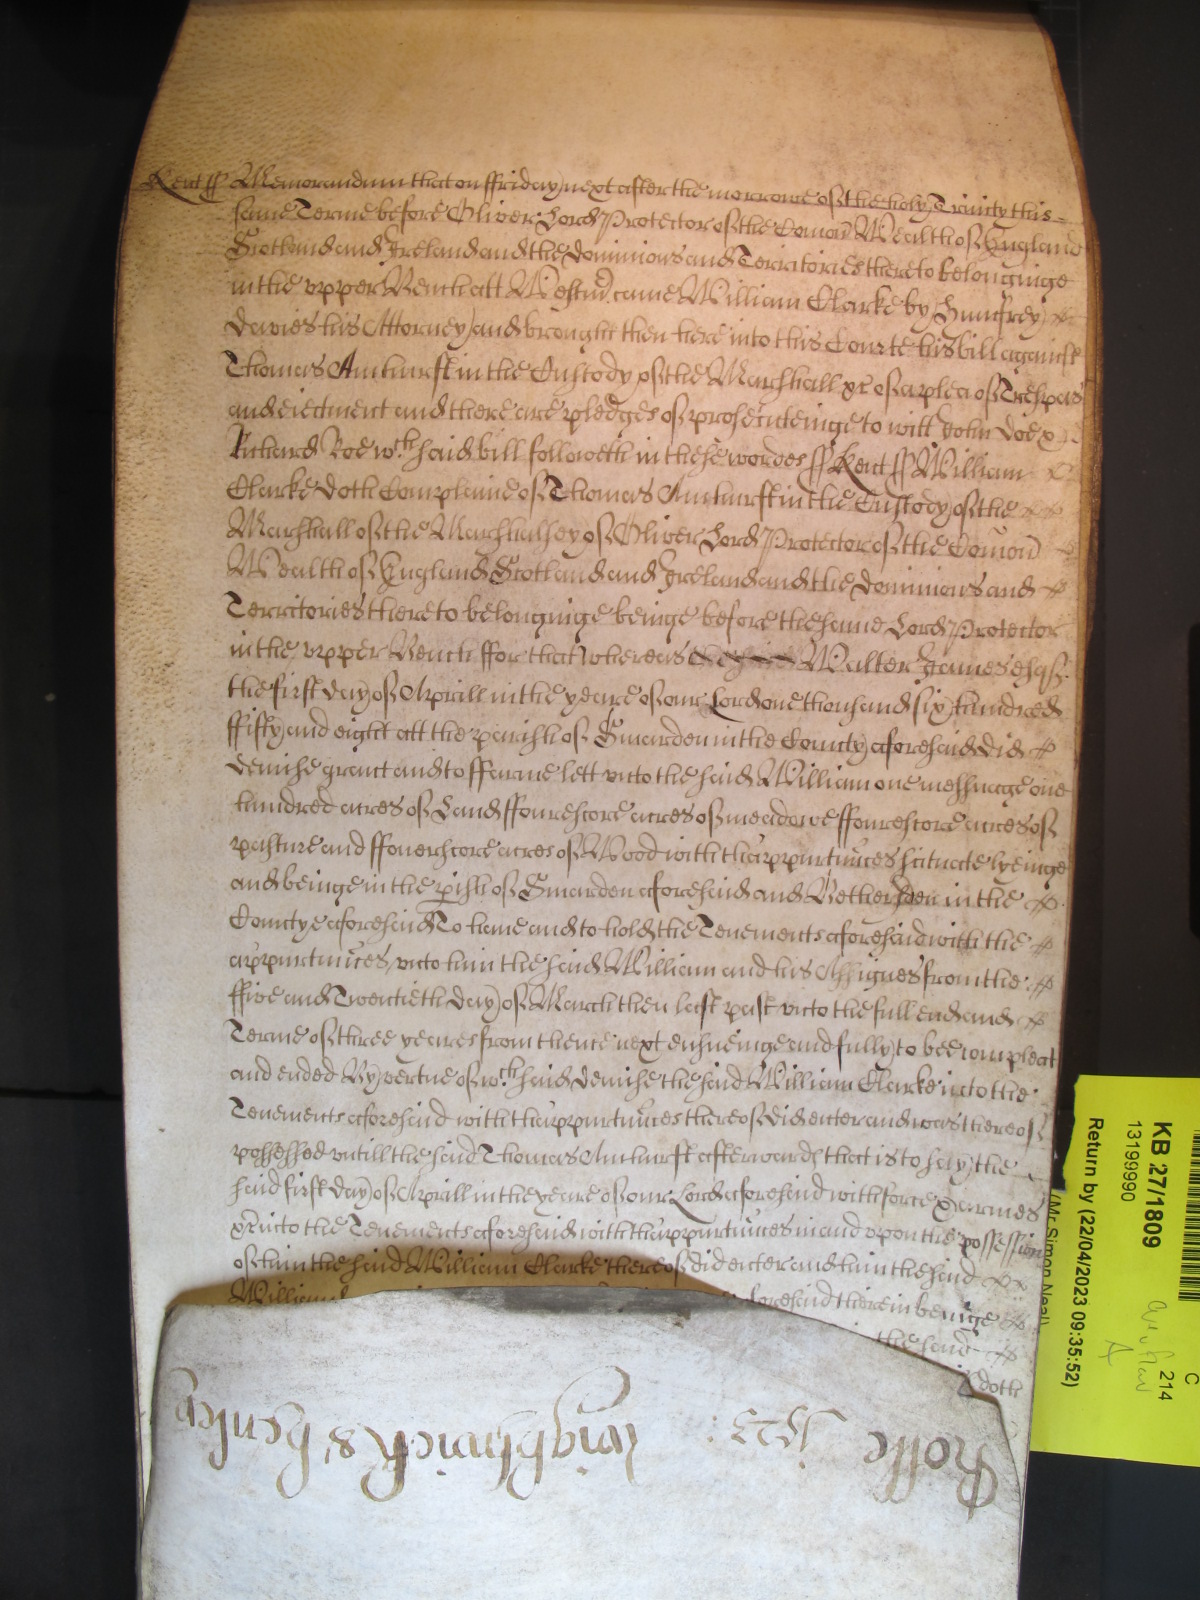 Kent ss Memorandum that on ffriday next after the morrowe of the holy Trinity this
same Terme before Oliver Lord Protector of the Comon Wealth of England
Scotland and Ireland and the dominions and Territories thereto belonginge
in the vpper Bench att Westmr came William Clarke by Humfrey
Davies his Attorney and brought then here into this Courte his bill against
Thomas Amhurst in the Custody of the Marshall &c of a plea of Trespas
and eiectment and there are pledges of prosecuteinge to witt John Doe &
Richard Roe wch said bill followeth in these wordes ss Kent ss William
Clarke doth Complaine of Thomas Amhurst in the Custody of the
Marshall of the Marshalsey of Oliver Lord Protector of the Comon
Wealth of England Scotland and Ireland and the dominions and
Territories thereto belonginge beinge before the same Lord Protector
in the vpper Bench ffor that whereas Walter James esqr
the first day of Aprill in the yeare of our Lord one thousand six hundred
ffifty and eight att the parish of Smarden in the County aforesaid did
demise grant and to ffarme lett vnto the said William one messuage one
hundred acres of Land ffourescore acres of meadowe ffourescore acres of
pasture and ffouerscore acres of Wood with thappurtunces scituate lyeinge
and beinge in the pish of Smarden aforesaid and Bethersden in the
Countye aforesaid To have and to hold the Tenements aforesaid with the
appurtunces vnto him the said William and his Assignes from the
ffive and Twentieth day of March then last past vnto the full end and
Terme of three yeares from thence next ensueinge and fully to bee compleat
and ended By vertue of wch said demise the said William Clarke into the
Tenements aforesaid with thappurtunces thereof did enter and was thereof
possessed vntill the said Thomas Amhurst afterwards that is to say the
said first day of Aprill in the yeare of our Lord aforesaid with force & armes
&c into the Tenements aforesaid with thappurtunces in and vpon the possession
of him the said William Clarke thereof did enter and him the said
William aforesaid therein beinge
the said
doth
Rolle 1523:
KB 27/1809
13199990
Return by (22/04/2023 09:35:52)
(Mr Simon Neal)
C
214
A